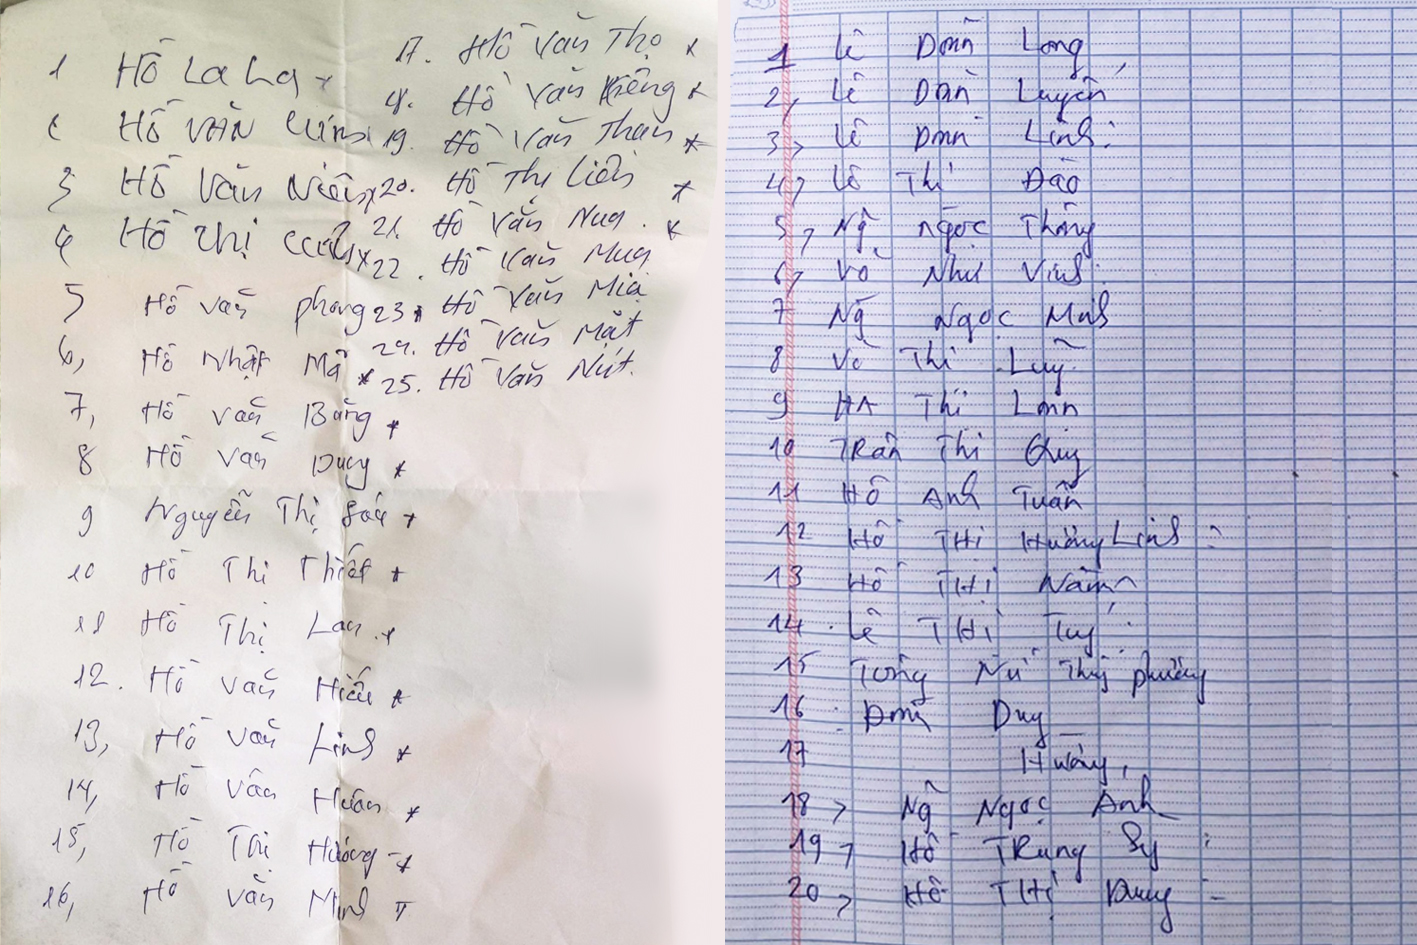 1 Hồ La La x
2 Hồ VĂN
3 Hồ Văn
4 Hồ Thị
5 Hồ Văn phong
6, Hồ Nhật Mã x
7, Hồ Văn Băng x
8 Hồ Văn Duey x
9 Nguyễn Thị x
10 Hồ Thị Thiết x
11 Hồ Thị Lan x
12. Hồ Văn Hiếu x
13, Hồ Văn Linh x
14, Hồ Văn Huấn x
15, Hồ Thị Hương x
16, Hồ Văn Minh
17. Hồ Văn Thọ x
18. Hồ Văn x
19. Hồ Văn Than x
20. Hồ Thị Liên x
21. Hồ Văn Nua x
22. Hồ Văn Mua
23. Hồ Văn Mia
24. Hồ Văn Mặt
25. Hồ Văn Nút.
1 Lê Doãn Long,
2, Lê Doãn Luyến
3, Lê Doãn Linh
4, Lê Thị Đào
5, Ng Ngọc Thắng
6, Võ Như Vinh
7 Ng Ngọc Minh
8 Võ Thị Luỹ
9 HÀ Thị Loan
10 TRẦn Thị Quý
11 Hồ Anh Tuấn
12 Hồ THỊ Hương Linh
13 Hồ THỊ Năm
14. Lê THỊ Tuý
15 Tường Nữ Thuỳ phương
16 Duy
17
18, Ng Ngọc Anh
19, Hồ TRung Sỹ
20, Hồ THị Dung